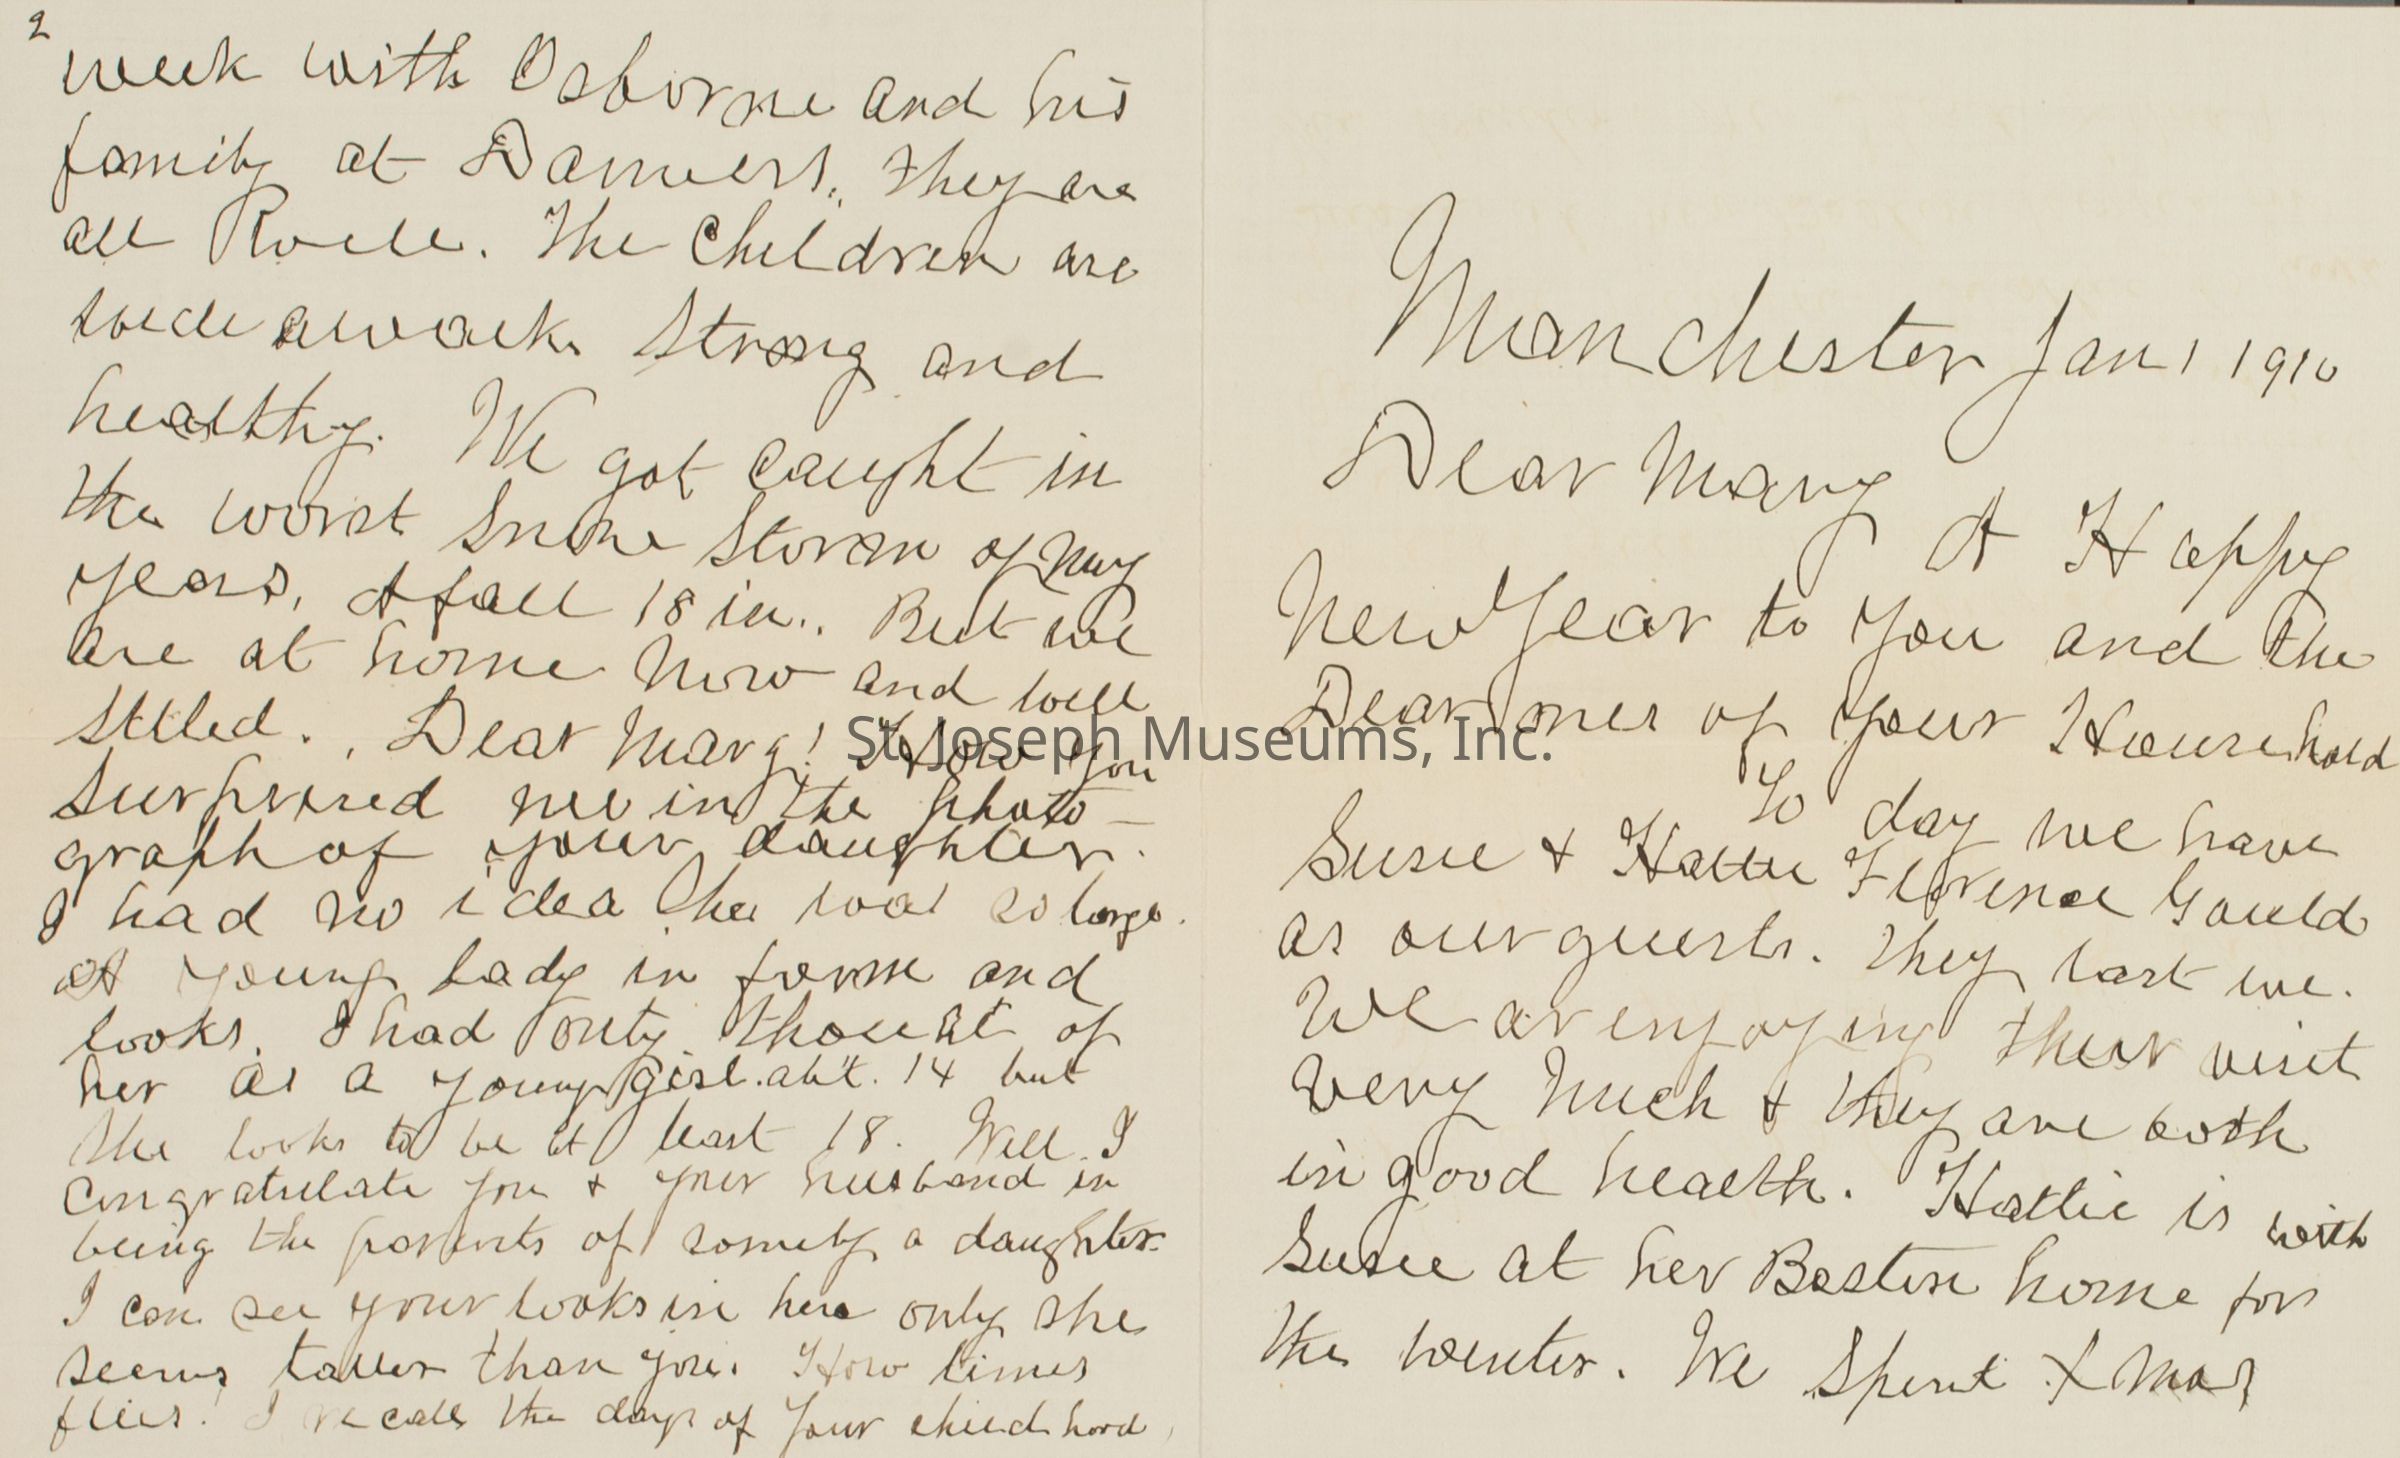 Manchester Jan 1 1910
Dear Mary
A Happy
New Year to you and the
Dear ones of your Household
To day we have
Susie & Hattie Florence Gould
as our guests. They last eve.
We ar enjoying their visit
very much & they are both
in good health. Hattie is with
Susie at her Boston home for
the winter. We spent Xmas
2
week with Osborne and his
family at Danvers. They are
all well. The Children are
wide awake strong and
healthy. We got caught in
the worst snow storm of my
years, A fall 18 in.. But we
are at home now and well
settled. Dear Mary! How you
surprised me in the photo-
graph of your daughter.
I had no idea she was so large.
A young lady in form and
looks. I had only thought of
her as a young girl abt. 14 but
she looks to be at least 18. Well I
congratulate you & your husband in
being the parents of a daughter.
I can see your looks in here only she
seems taller than you. How times
flies! I recall the days of your childhood
St. Joseph Museums, Inc.